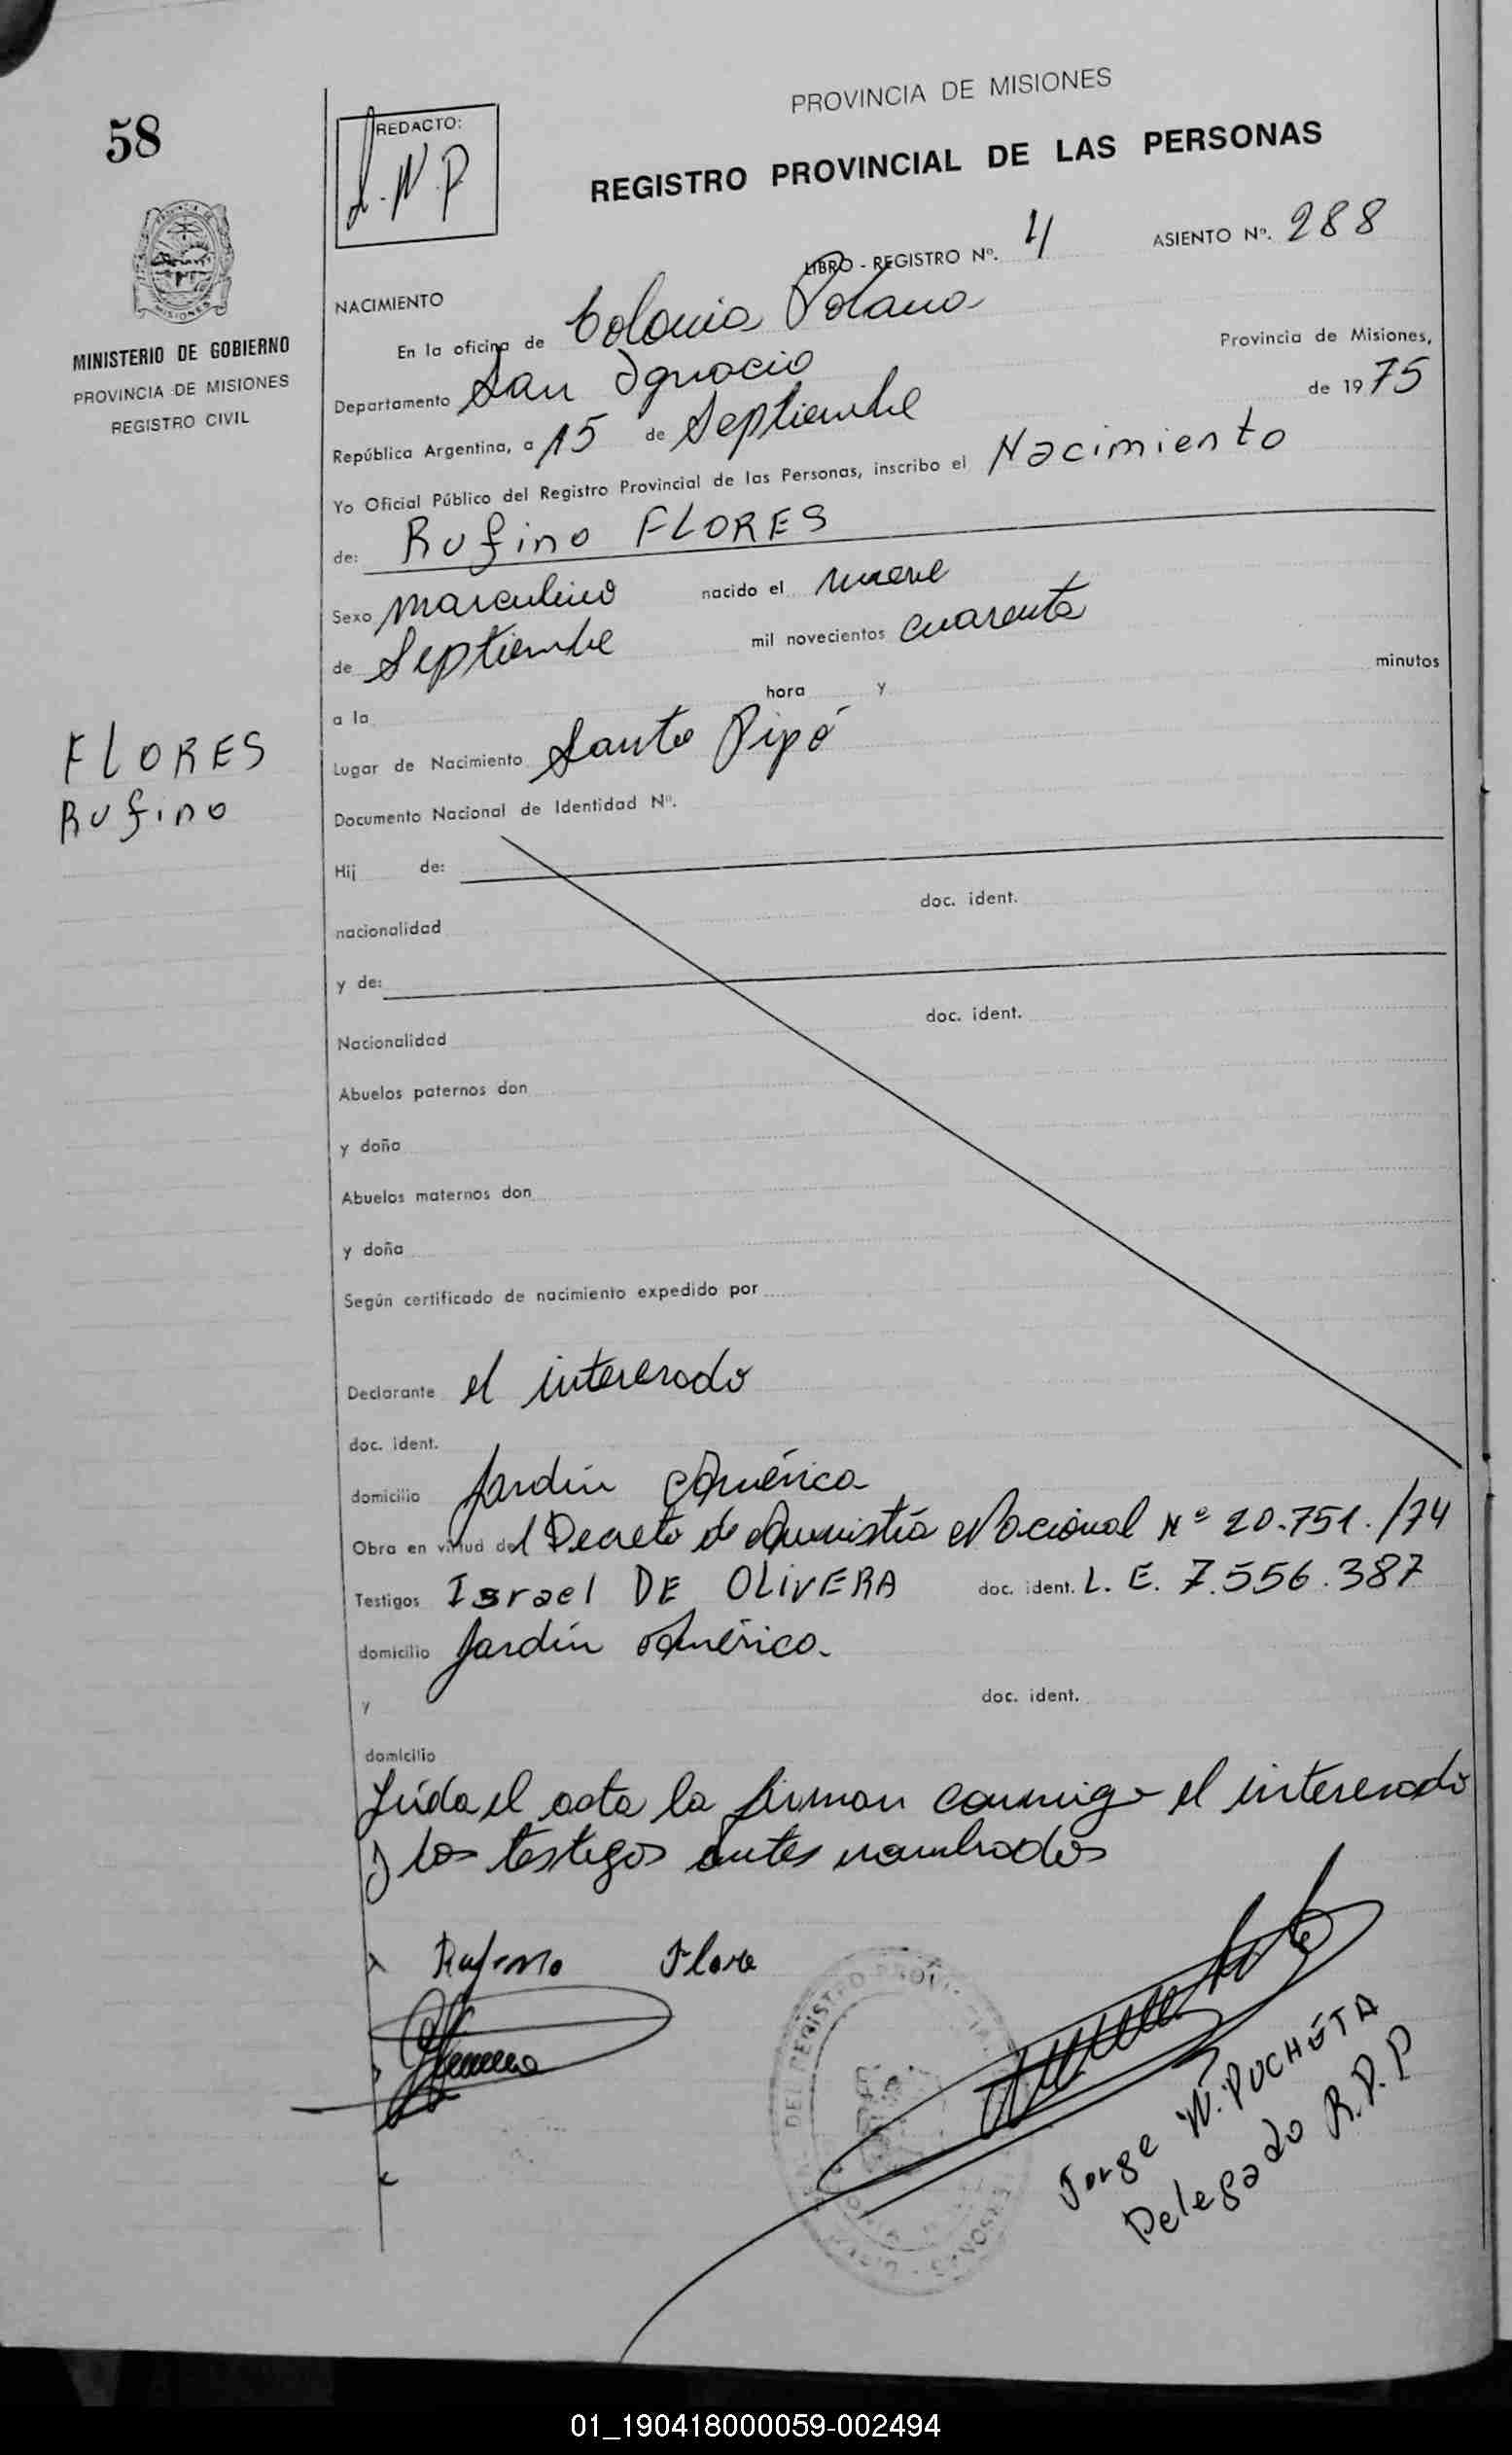 58
REDACTO:
J.W.P
PROVINCIA DE MISIONES
REGISTRO PROVINCIAL DE LAS PERSONAS
LIBRO - REGISTRO Nº. 4 ASIENTO Nº. 288
MINISTERIO DE GOBIERNO
PROVINCIA DE MISIONES
REGISTRO CIVIL
NACIMIENTO
En la oficina de Colonia Polana
Departamento San Ignacio Provincia de Misiones,
República Argentina, a 15 de Septiembre de 1975
Yo Oficial Público del Registro Provincial de las Personas, inscribo el Nacimiento
de: Rufino FLORES
Sexo masculino nacido el nueve
de Septiembre mil novecientos cuarenta
a la hora y minutos
FLORES
Rufino
Lugar de Nacimiento Santo Pipó
Documento Nacional de Identidad Nº.
Hij de:
nacionalidad doc. ident.
y de:
Nacionalidad doc. ident.
Abuelos paternos don
y doña
Abuelos maternos don
y doña
Según certificado de nacimiento expedido por
Declarante el interesado
doc. ident.
domicilio Jardín América
Obra en virtud del Decreto de Amnistía Nacional Nº 20.751./74
Testigos Israel DE OLIVERA doc. ident. L. E. 7.556.387
domicilio Jardín América.
y doc. ident.
domicilio
Leída el acta la firman conmigo el interesado
y los testigos antes nombrados
Rufino Flore
Jorge W. PUCHETA
Delegado R.P.P
01_190418000059-002494